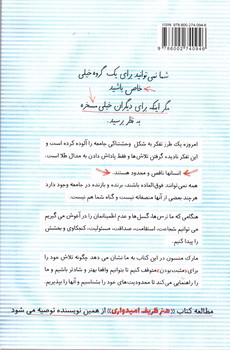 ISBN: 978-600-274-094-6
9 786002 740946
شما نمی توانید برای یک گروه خیلی
خاص باشید
مگر اینکه برای دیگران خیلی مسخره
به نظر برسید.
امروزه یک طرز تفکر به شکل وحشتناکی جامعه را آلوده کرده است و
این تفکر نادیده گرفتن تلاش‌ها و فقط پاداش دادن به مدال طلا است.
انسانها ناقص و محدود هستند.
همه نمی‌توانند فوق‌العاده باشند، برنده و بازنده در جامعه وجود دارد
هرچند بعضی از آنها منصفانه نیست و گناه شما هم نیست.
هنگامی که ما ترس‌ها، گسل‌ها و عدم اطمینانمان را در آغوش می گیریم
می توانیم شجاعت، استقامت، صداقت، مسئولیت، کنجکاوی و بخشش
را پیدا کنیم.
مارک منسون در این کتاب به ما نشان می دهد چگونه تلاش خود را
برای «مثبت‌بودن» متوقف کنیم تا بتوانیم واقعا بهتر و شادتر باشیم و ما
را راهنمایی می‌کند تا محدودیت های خود را بشناسیم و آنها را بپذیریم.
مطالعه کتاب «هنر ظریف امیدواری» از همین نویسنده توصیه می شود